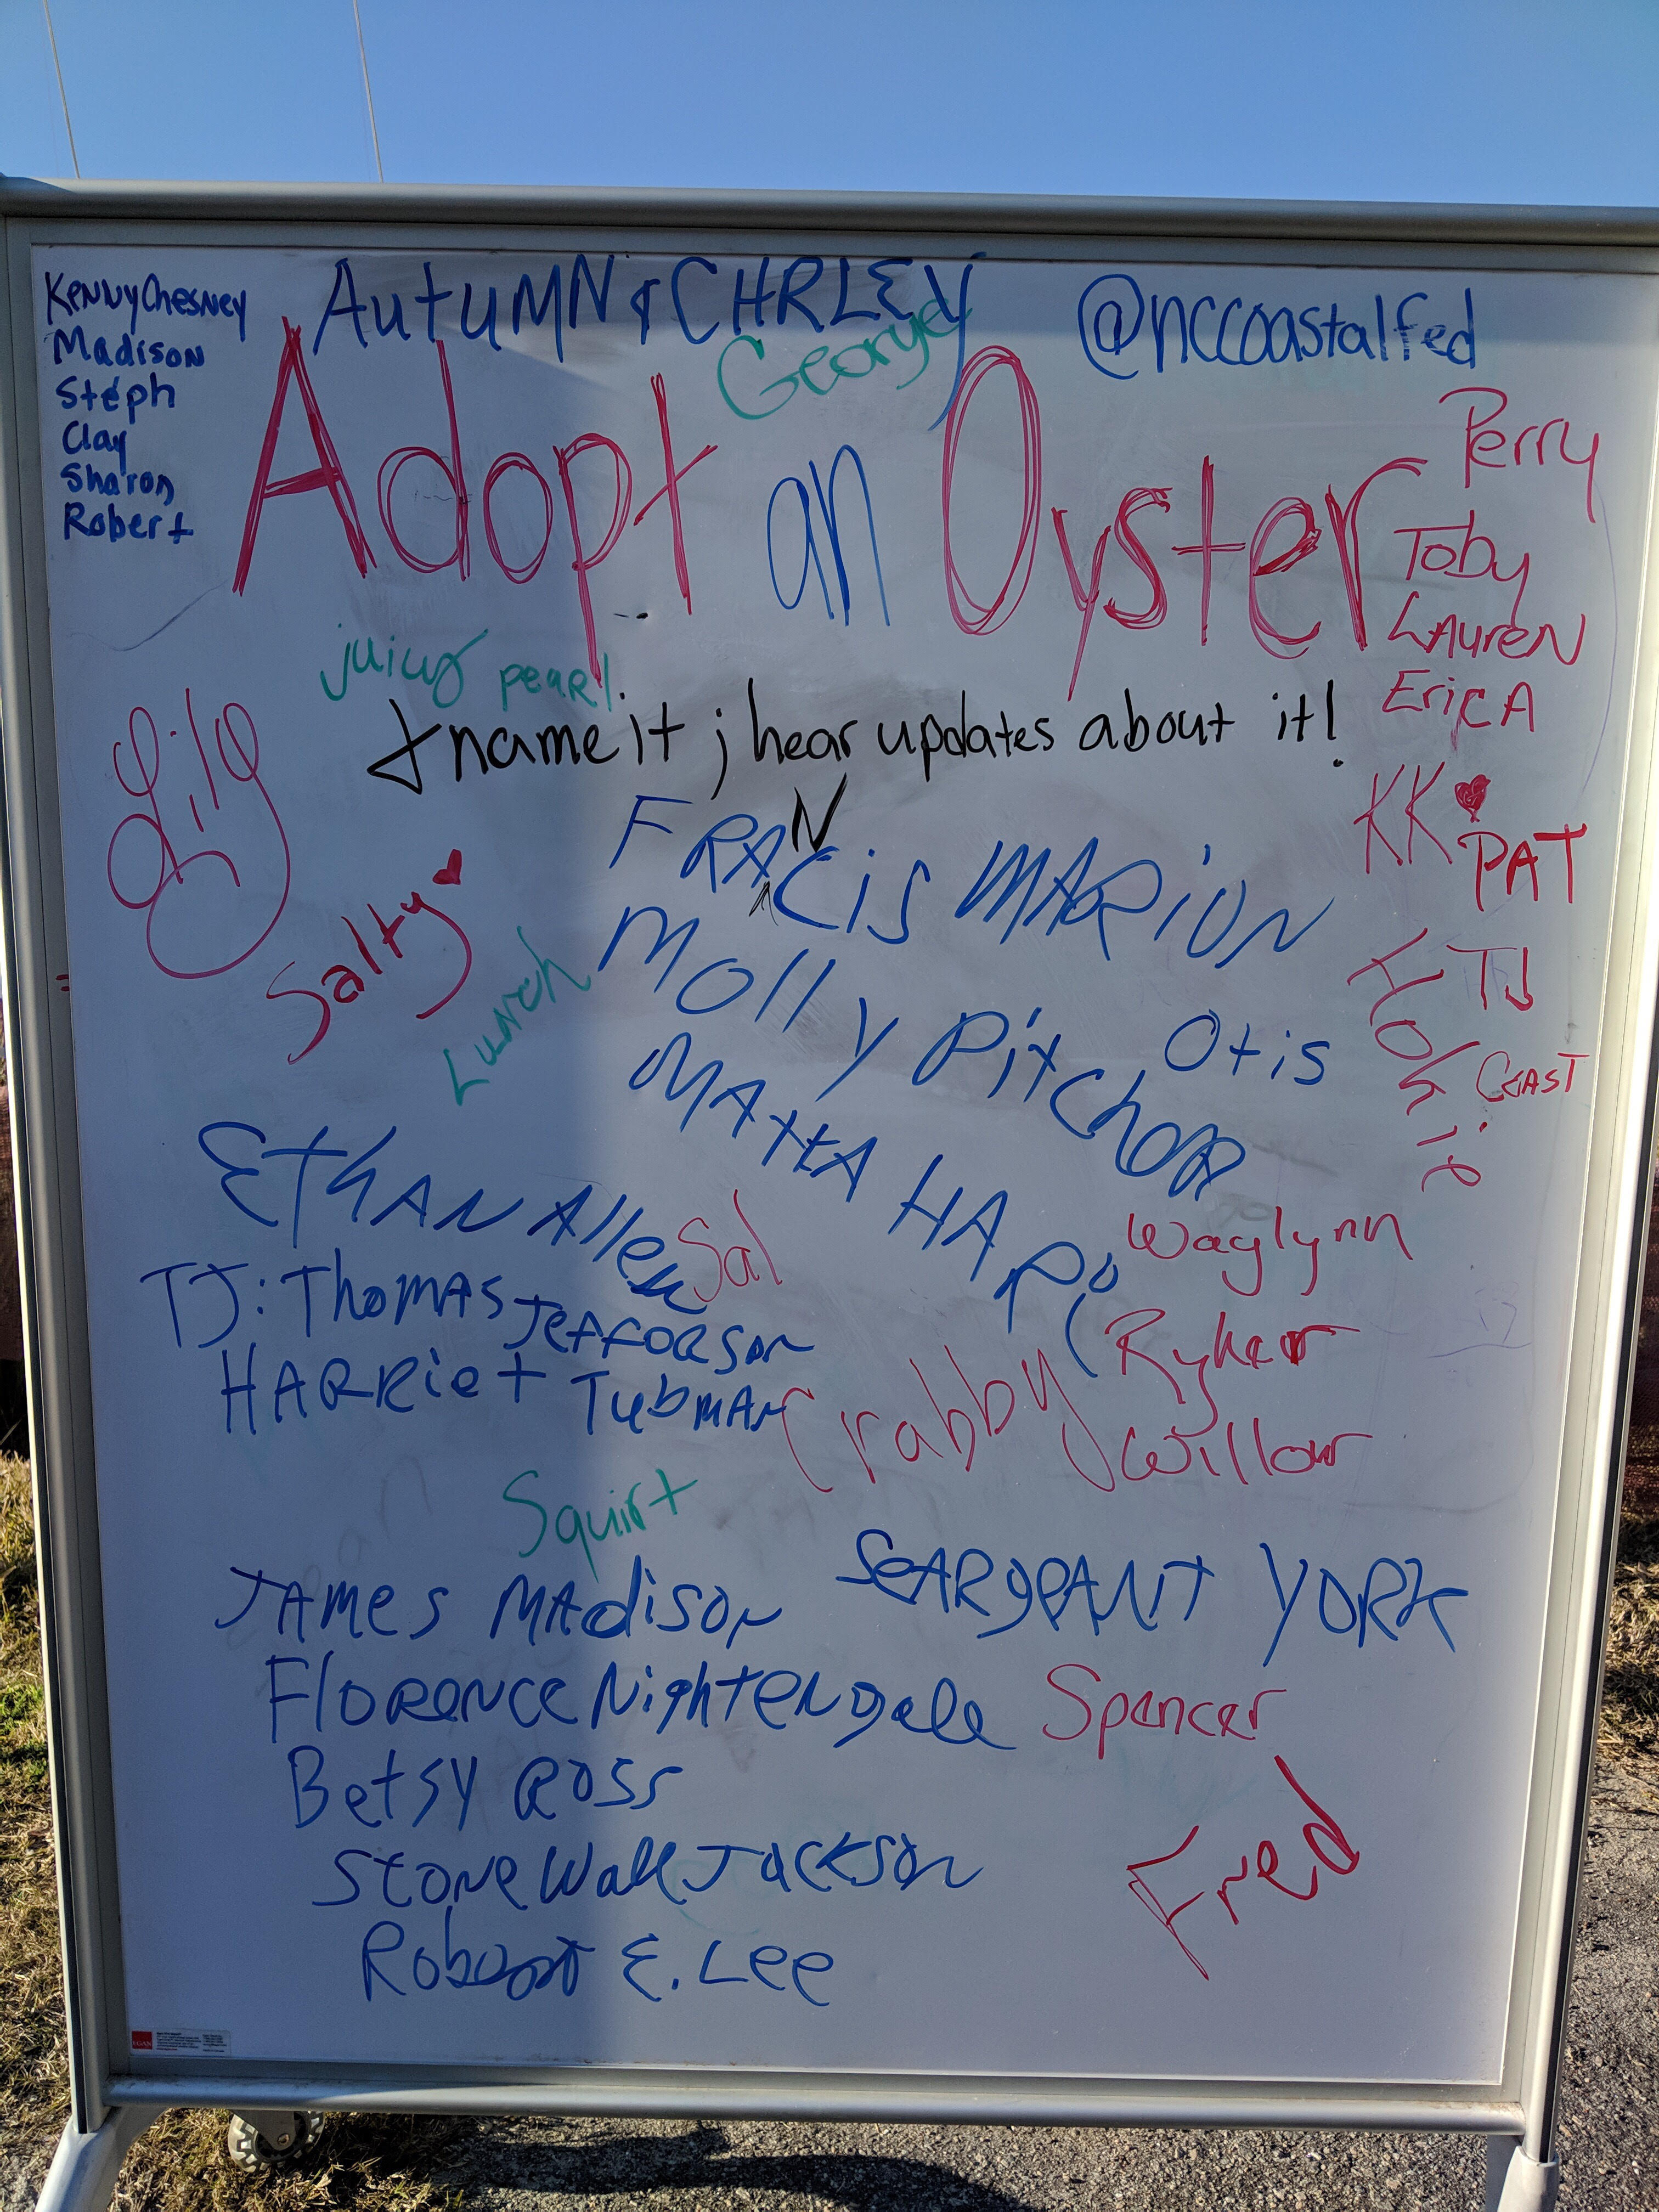 KENNy ChesNEy
Madison
Steph
Clay
Sharon
Robert
AutuMN & CHRLEY
@nccoastalfed
George
Adopt an Oyster
Perry
Toby
LAureN
EricA
juicy pearl
& name it ; hear updates about it!
Lily
KK
PAT
FRANCis MARiON
Salty
Lunch
Molly PitchER
Otis
TJ
Hokie
COAST
MAttA HARi
EthAN AlleN
Sal
Waylynn
TJ: ThoMAS JeffORSon
Ryker
HARRiet TubmAN
Crabby
Willow
Squirt
JAMes MAdisoN
SeARgeANT YORK
FloRence NightENgale
Spencer
Betsy Ross
StoneWall Jackson
Fred
Robert E. Lee